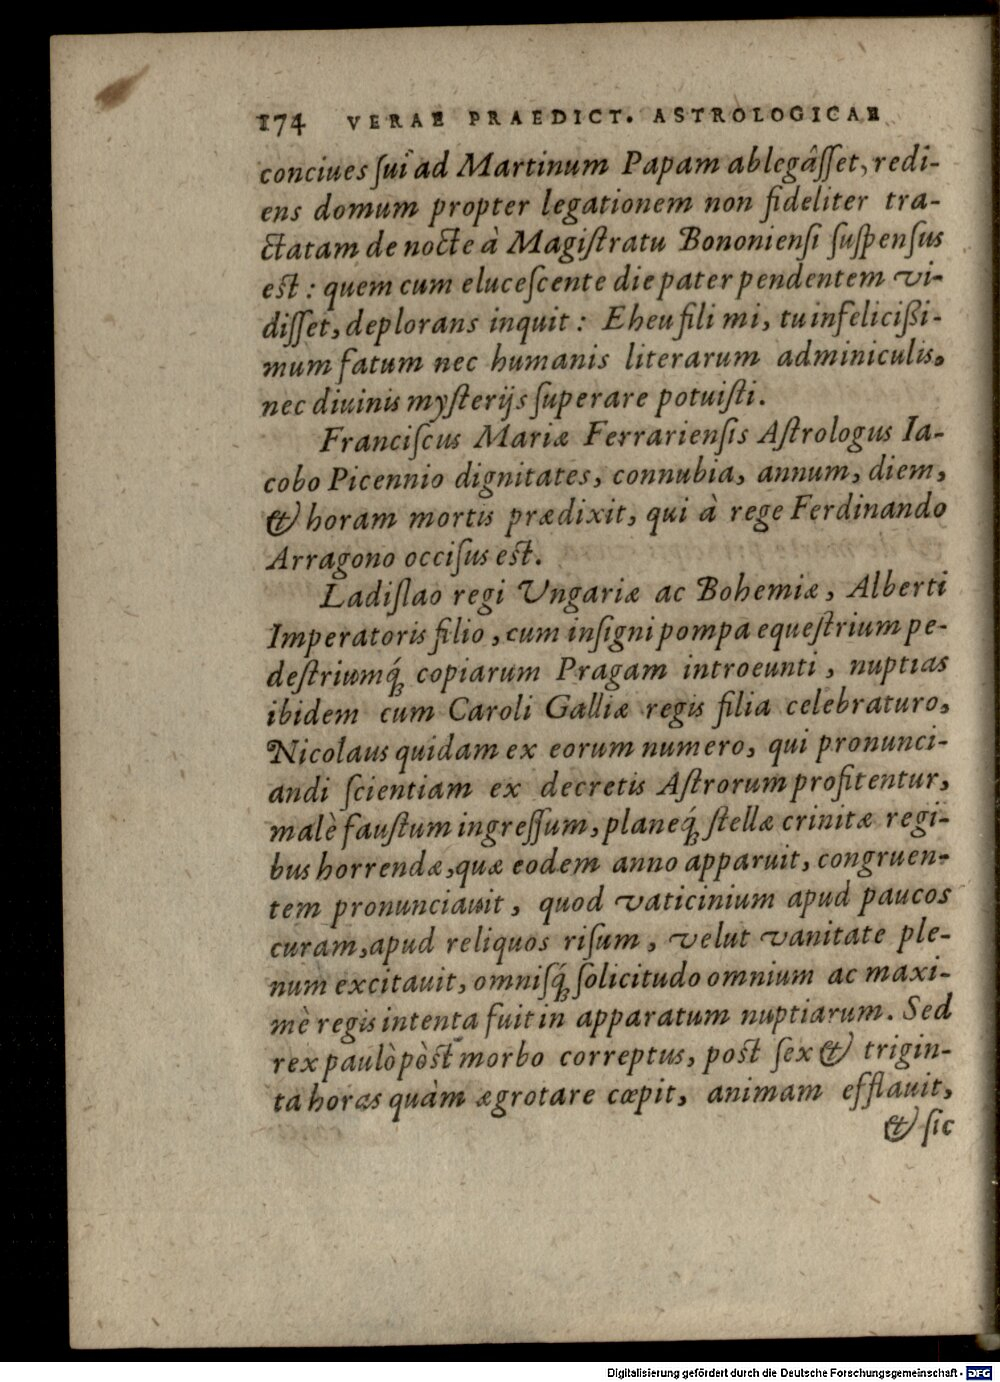 174 VERAE PRAEDICT. ASTROLOGICAE
conciues ſui ad Martinum Papam ablegâſſet, redi-
ens domum propter legationem non fideliter tra-
ctatam de nocte à Magiſtratu Bononienſi ſuſpenſus
eſt: quem cum eluceſcente die pater pendentem vi-
diſſet, deplorans inquit: Eheu fili mi, tu infelicißi-
mum fatum nec humanis literarum adminiculis,
nec diuinis myſterijs ſuperare potuiſti.
Franciſcus Mariæ Ferrarienſis Aſtrologus Ia-
cobo Picennio dignitates, connubia, annum, diem,
& horam mortis prædixit, qui à rege Ferdinando
Arragono occiſus eſt.
Ladiſlao regi Ungariæ ac Bohemiæ, Alberti
Imperatoris filio, cum inſigni pompa equeſtrium pe-
deſtriumq́; copiarum Pragam introeunti, nuptias
ibidem cum Caroli Galliæ regis filia celebraturo,
Nicolaus quidam ex eorum numero, qui pronunci-
andi ſcientiam ex decretis Aſtrorum profitentur,
malè fauſtum ingreſſum, planeq́; ſtellæ crinitæ regi-
bus horrendæ, quæ eodem anno apparuit, congruen-
tem pronunciauit, quod vaticinium apud paucos
curam, apud reliquos riſum, velut vanitate ple-
num excitauit, omniſq́; ſolicitudo omnium ac maxi-
mè regis intenta fuit in apparatum nuptiarum. Sed
rex paulò pòſt morbo correptus, poſt ſex & trigin-
ta horas quàm ægrotare cœpit, animam efflauit,
& ſic
Digitalisierung gefördert durch die Deutsche Forschungsgemeinschaft - DFG